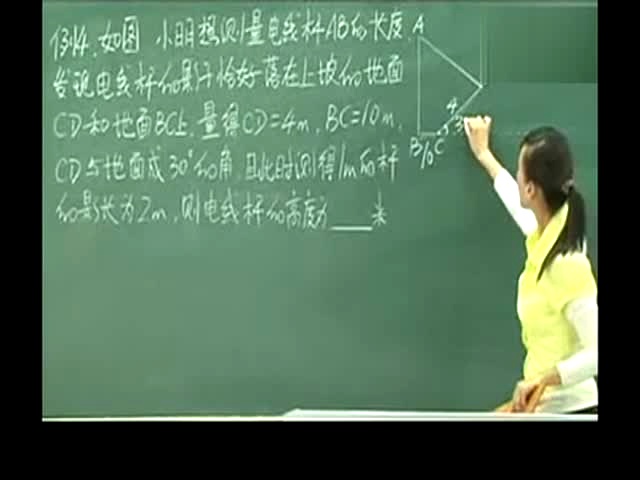 例14.如图 小明想测量电线杆AB的长度
发现电线杆的影子恰好落在土坡的地面
CD和地面BC上,量得CD=4m,BC=10m,
CD与地面成30°的角,且此时测得1m的杆
的影长为2m,则电线杆的高度为____米
A
4
3
B 10 C